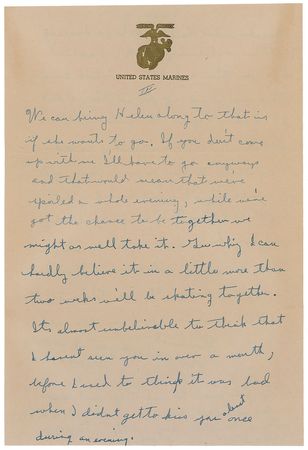 UNITED STATES MARINES
IV
We can bring Helen along to that is
if she wants to go. If you don't come
up with me I'll have to go anyways
and that would mean that we've
spoiled a whole evening, while we've
got the chance to be together we
might as well take it. Gee why I can
hardly believe it in a little more than
two weeks we'll be skating together.
Its almost unbelivable to think that
I havent seen you in over a month,
before I used to think it was bad
when I didn't get to kiss you about once
during an evening.